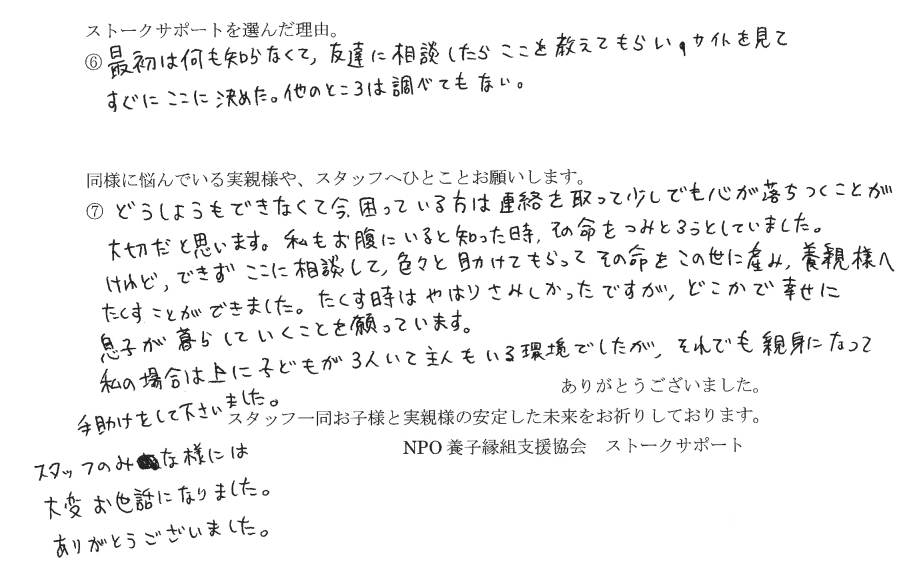 ストークサポートを選んだ理由。
⑥最初は何も知らなくて、友達に相談したらここを教えてもらい、サイトを見て
すぐにここに決めた。他のところは調べてもない。
同様に悩んでいる実親様や、スタッフへひとことお願いします。
⑦ どうしようもできなくて今、困っている方は連絡を取って少しでも心が落ちつくことが
大切だと思います。私もお腹にいると知った時、その命をつみとろうとしていました。
けれど、できず ここに相談して、色々と助けてもらって その命をこの世に産み、養親様へ
たくすことができました。たくす時はやはりさみしかったですが、どこかで幸せに
息子が暮らしていくことを願っています。
私の場合は上に子どもが3人いて主人もいる環境でしたが、それでも親身になって
手助けをして下さいました。
ありがとうございました。
スタッフ一同お子様と実親様の安定した未来をお祈りしております。
NPO 養子縁組支援協会　ストークサポート
スタッフのみな様には
大変お世話になりました。
ありがとうございました。